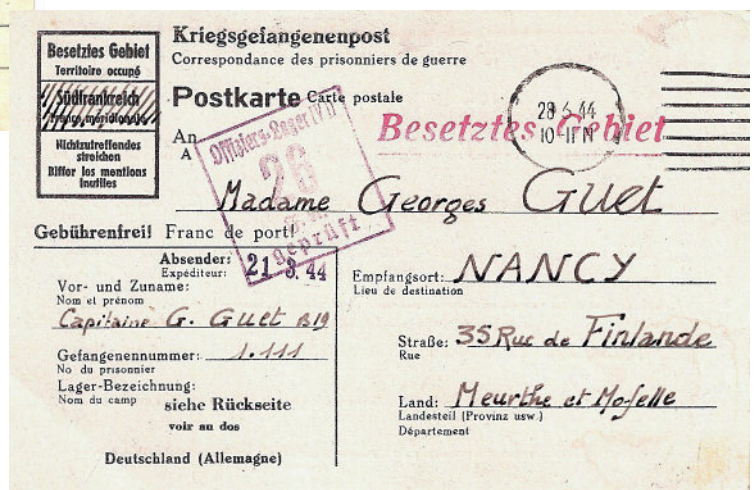 Besetztes Gebiet
Territoire occupé
Südfrankreich
France méridionale
Nichtzutreffendes
streichen
Biffer les mentions
inutiles
Kriegsgefangenenpost
Correspondance des prisonniers de guerre
Postkarte Carte postale
28 44
10-11 N
Besetztes Gebiet
An
A
Offiziers-Lager
26
geprüft
Madame Georges Guet
Gebührenfrei! Franc de port!
21 3. 44
Absender:
Expéditeur:
Vor- und Zuname:
Nom et prénom
Capitaine G. Guet B19
Gefangenennummer: 1.111
No du prisonnier
Lager-Bezeichnung:
Nom du camp
siehe Rückseite
voir au dos
Deutschland (Allemagne)
Empfangsort: NANCY
Lieu de destination
Straße: 35 Rue de Finlande
Rue
Land: Meurthe et Moselle
Landesteil (Provinz usw.)
Département